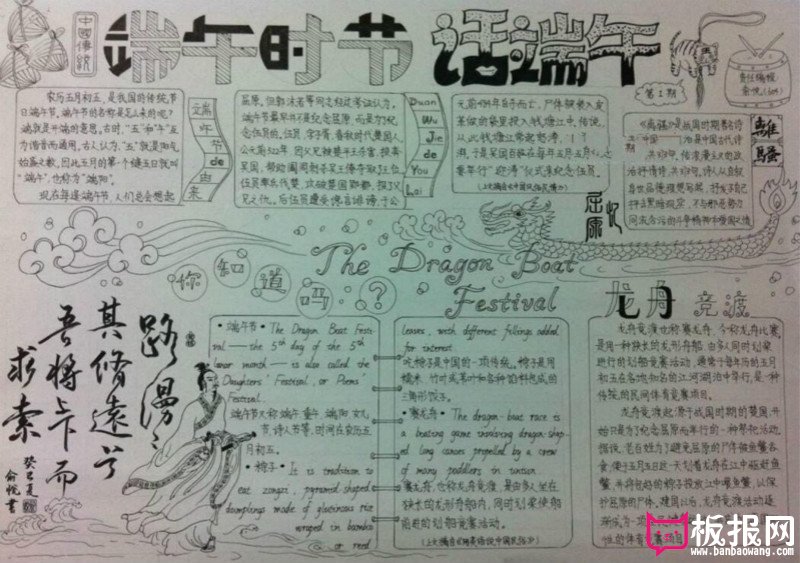 中國傳統
端午时节 话端午
第1期
责任编辑
农历五月初五,是我国的传统节
日端午节,端午节的名称是怎么来的呢?
端就是开端的意思。古时,“五”和“午”互
为谐音而通用。古人认为,“五”就是阳气
始盛之数,因此五月的第一个逢五日就叫
“端午”,也称为“端阳”。
现在每逢端午节,人们总会想起
端午节de由来
屈原。但郭沫若等同志经过考证认为,
端午节最早并不是纪念屈原,而是为纪
念伍员的。伍员,字子胥,春秋时代楚国人。
公元前522年,因父兄被楚平王杀害,投奔
吴国,帮助阖闾刺吴王僚夺取王位。
伍员率兵伐楚,攻破楚国郢都,报了父
兄之仇。后伍员遭受谗言诽谤,于公
Duan
Wu
Jie
de
You
Lai
元前484年自杀而亡,尸体被装入皮
革做的袋里投入钱塘江中。传说,
从此钱塘江常起怒涛,
于是吴国百姓在每年五月五
要举行“迎涛”仪式来纪念伍员。
屈原
忆
《离骚》是战国时期著名诗
是中国古代诗
共370多句,伟浪漫主义的政
治抒情诗。共370多句,诗人从自叙
身世品德理想写起,抒发了自己
抨击黑暗现实,不与邪恶势力
同流合污的斗争精神和爱国之情
離騷
你知道吗?
The Dragon Boat
Festival
龙舟竞渡
路漫漫
其修遠兮
吾將上下而
求索
癸巳夏
俞悦書
•端午节•The Dragon Boat Fest-
ival — the 5th day of the 5th
lunar month — is also called the
Daughters' Festival, or Poems
Festival.
端午节又称端午、重午、端阳、女儿
节、诗人节等,时间在农历五
月初五。
•粽子•It is tradition to
eat zongzi, pyramid-shaped
dumplings made of glutinous rice
wraped in bamboo
or reed
leaves, with different fillings added
for interest.
吃粽子是中国的一项传统。粽子是用
糯米、竹叶或苇叶和各种馅料包成的
三角形饺子。
•赛龙舟•The dragon-boat race is
a boating game involving dragon-shap-
ed long canoes propelled by a crew
of many paddlers in unison.
赛龙舟,也称为龙舟竞渡,是由多人坐在
狭长的龙形舟船内,同时划桨使船
前进的划船竞赛活动。
龙舟竞渡也称赛龙舟,今称龙舟比赛,
是用一种狭长的龙形舟船,由多人同时划桨
进行的划船竞赛活动,通常于每年历的五月
初五在各地知名的江河湖泊中举行,是一种
传统的民间体育竞赛活动。
龙舟竞渡起源于战国时期的楚国,开
始只是为了纪念屈原而举行的一种祭祀活动。
据说,老百姓为了避免屈原的尸体被鱼蟹吞
食,便于五月五日这一天划着龙舟在江中驱赶鱼
蟹,并将包好的粽子投放江中喂鱼蟹,以保
护屈原的尸体。建国以后,龙舟竞渡活动逐
渐成为一项
性的体育竞赛
板报网
www.banbaowang.com